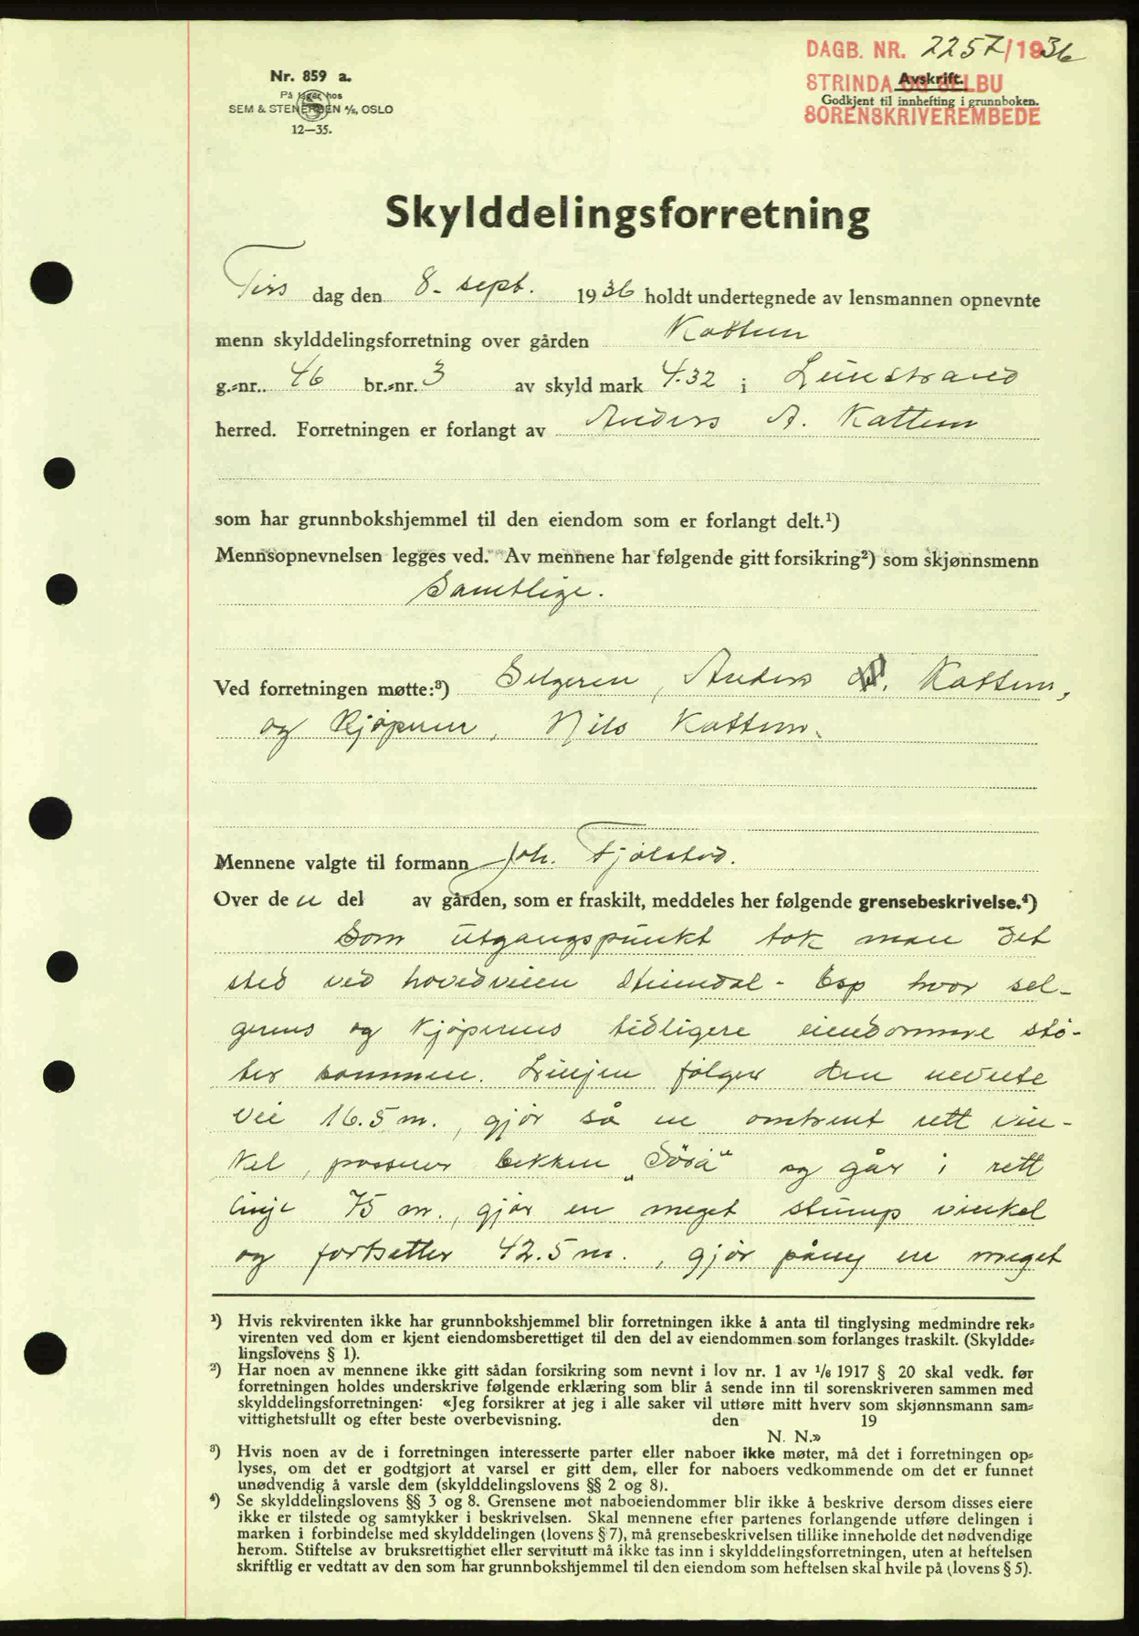 DAGB. NR. 2257/1936
STRINDA OG SELBU
SORENSKRIVEREMBEDE
Avskrift.
Godkjent til innhefting i grunnboken.
Nr. 859 a.
På lager hos
SEM & STENERSEN A/S, OSLO
12—35.
Skylddelingsforretning
Tirs dag den 8. sept. 1936 holdt undertegnede av lensmannen opnevnte
menn skylddelingsforretning over gården Kattem
g.-nr.. 46 br.-nr. 3 av skyld mark 4.32 i Leinstrand
herred. Forretningen er forlangt av Anders A. Kattem
som har grunnbokshjemmel til den eiendom som er forlangt delt.¹)
Mennsopnevnelsen legges ved. Av mennene har følgende gitt forsikring²) som skjønnsmenn
Samtlige.
Ved forretningen møtte:³) Selgeren, Anders A. Kattem,
og kjøperen, Nils Kattem.
Mennene valgte til formann Joh. Fjølstad.
Over den del av gården, som er fraskilt, meddeles her følgende grensebeskrivelse.⁴)
Som utgangspunkt tok man det
sted ved hovedveien Heimdal - Esp hvor sel-
gerens og kjøperens tidligere eiendomme stø-
ter sammen. Linjen følger den nevnte
vei 16.5 m., gjør så en omtrent rett vin-
kel, passerer bekken „Söra" og går i rett
linje 75 m., gjør en meget stump vinkel
og fortsetter 42.5 m., gjør påny en meget
¹) Hvis rekvirenten ikke har grunnbokshjemmel blir forretningen ikke å anta til tinglysing medmindre rek-
virenten ved dom er kjent eiendomsberettiget til den del av eiendommen som forlanges fraskilt. (Skyldde-
lingslovens § 1).
²) Har noen av mennene ikke gitt sådan forsikring som nevnt i lov nr. 1 av ¹/₆ 1917 § 20 skal vedk. før
forretningen holdes underskrive følgende erklæring som blir å sende inn til sorenskriveren sammen med
skylddelingsforretningen: «Jeg forsikrer at jeg i alle saker vil utføre mitt hverv som skjønnsmann sam-
vittighetsfullt og efter beste overbevisning. den 19
N. N.»
³) Hvis noen av de i forretningen interesserte parter eller naboer ikke møter, må det i forretningen op-
lyses, om det er godtgjort at varsel er gitt dem, eller for naboers vedkommende om det er funnet
unødvendig å varsle dem (skylddelingslovens §§ 2 og 8).
⁴) Se skylddelingslovens §§ 3 og 8. Grensene mot naboeiendommer blir ikke å beskrive dersom disses eiere
ikke er tilstede og samtykker i beskrivelsen. Skal mennene efter partenes forlangende utføre delingen i
marken i forbindelse med skylddelingen (lovens § 7), må grensebeskrivelsen tillike inneholde det nødvendige
herom. Stiftelse av bruksrettighet eller servitutt må ikke tas inn i skylddelingsforretningen, uten at heftelsen
skriftlig er vedtatt av den som har grunnbokshjemmel til den eiendom som heftelsen skal hvile på (lovens § 5).